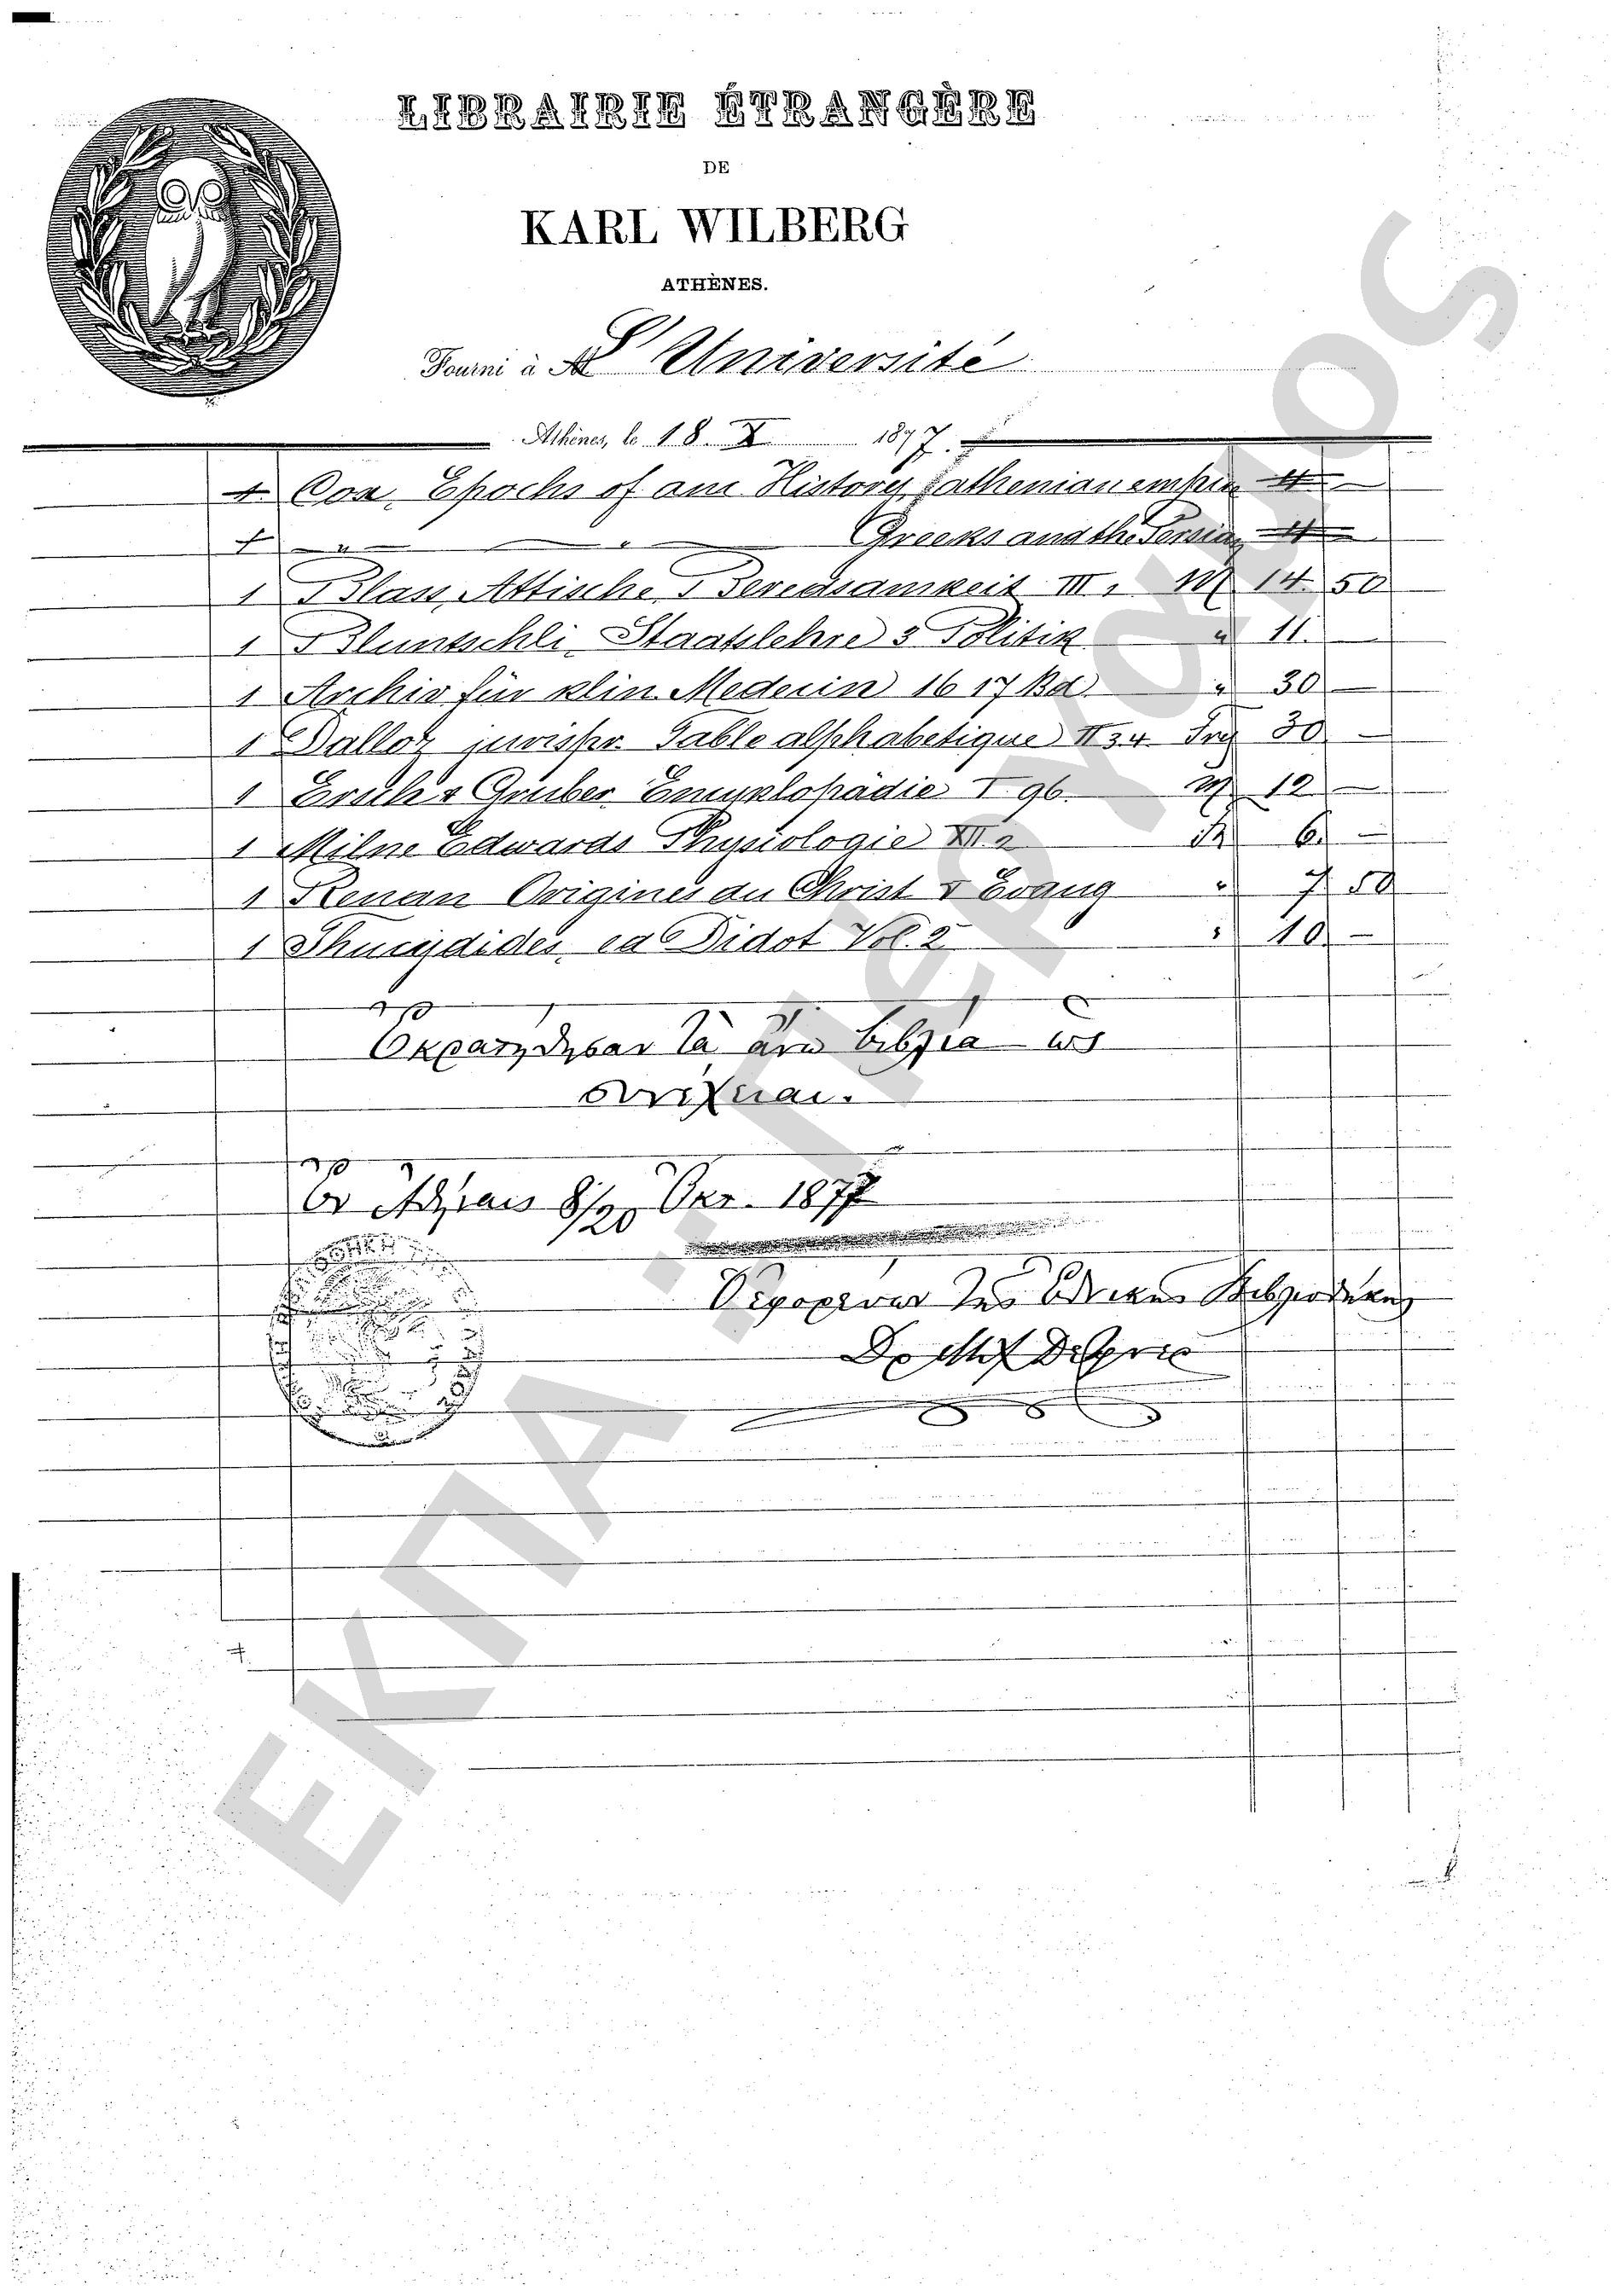 LIBRAIRIE ÉTRANGÈRE
DE
KARL WILBERG
ATHÈNES.
Fourni à L'Université
Athènes, le 18. X 1877.
1 Cox, Epochs of anc History, athenian empire 4 —
1 " " Greeks and the Persian 4 —
1 Blass, Attische Beredsamkeit III 1 M 14 50
1 Bluntschli, Staatslehre 3 Politik " 11. —
1 Archiv für klin. Medecin 16 17 Bd. " 30 —
1 Dalloz jurispr. Table alphabetique II 3 4 Frs 30 —
1 Ersch & Gruber Encyklopädie I 96. M 12 —
1 Milne Edwards Physiologie XII 2 6. —
1 Renan Origines du Christ V Evang " 7 50
1 Thucydides, ed Didot Vol. 2 " 10 —
Ἐκρατήθησαν τὰ ἄνω βιβλία ὡς
Ἐν Ἀθήναις 8/20 Ὀκτ. 1877
Ὁ Ἔφορος τῆς Ἐθνικῆς Βιβλιοθήκης
ΕΚΠΑ - ΠΕΡΓΑΜΟΣ